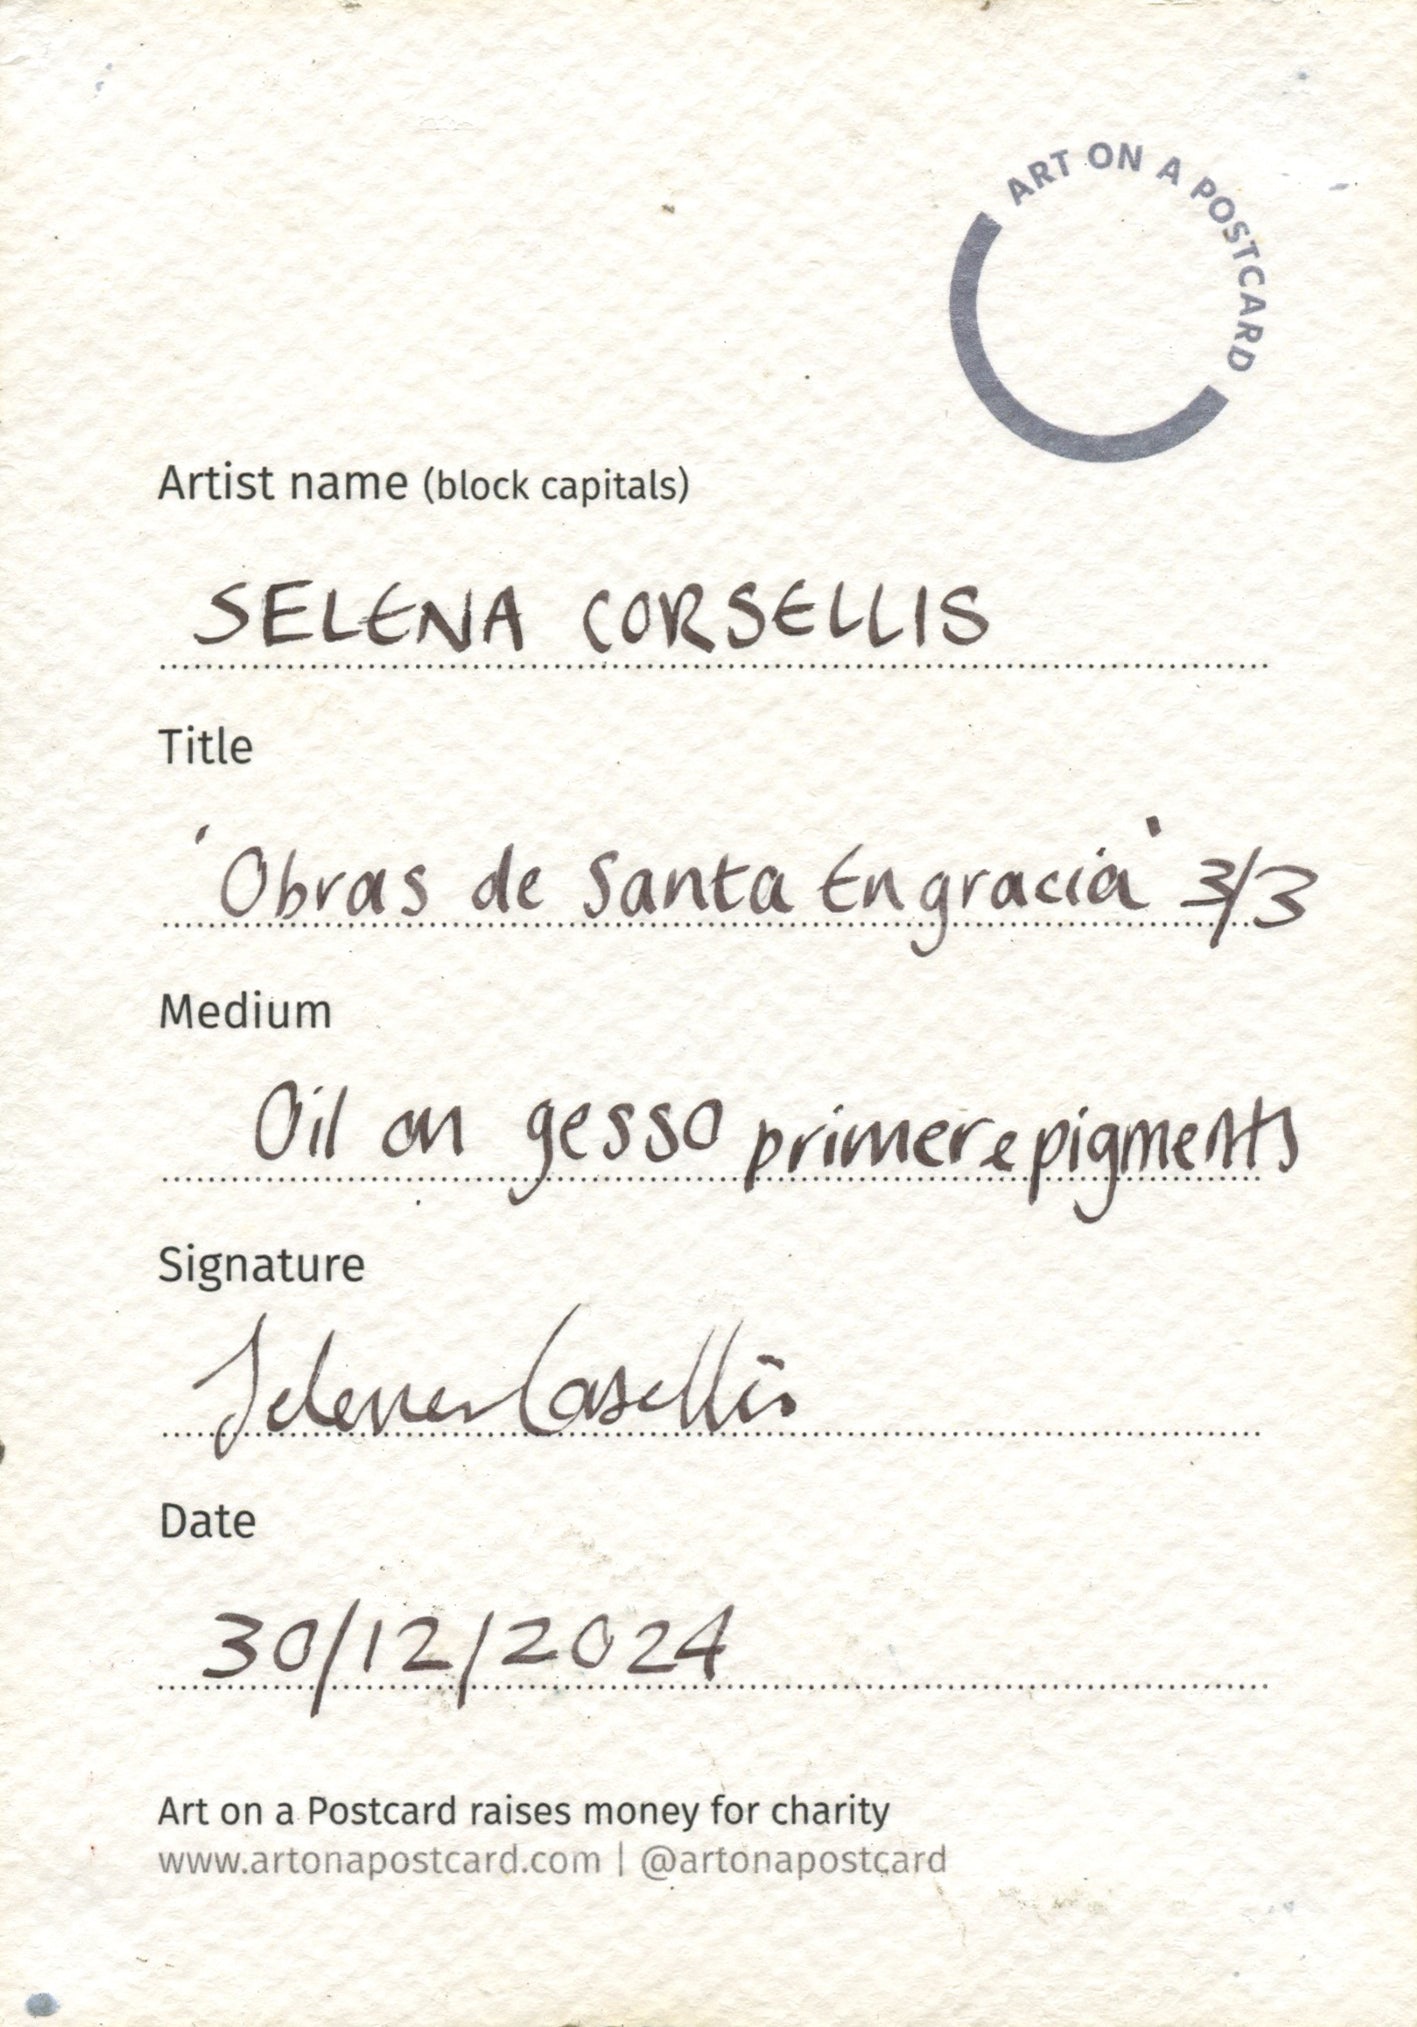 ART ON A POSTCARD
Artist name (block capitals)
SELENA CORSELLIS
Title
'Obras de Santa Engracia' 3/3
Medium
Oil on gesso primer e pigments
Signature
Selena Corsellis
Date
30/12/2024
Art on a Postcard raises money for charity
www.artonapostcard.com | @artonapostcard